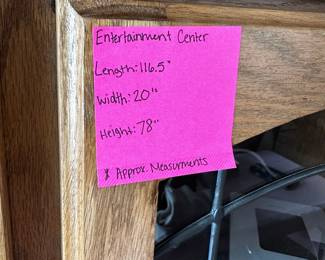 Entertainment Center
Length: 116.5"
Width: 20"
Height: 78"
* Approx. Measurments